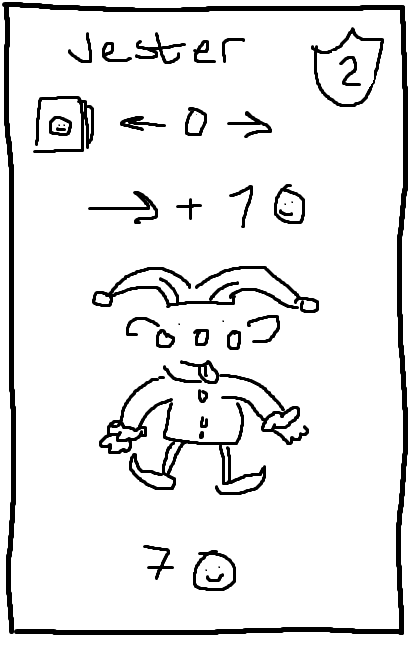 Jester
2
← 0 →
→ + 1
7